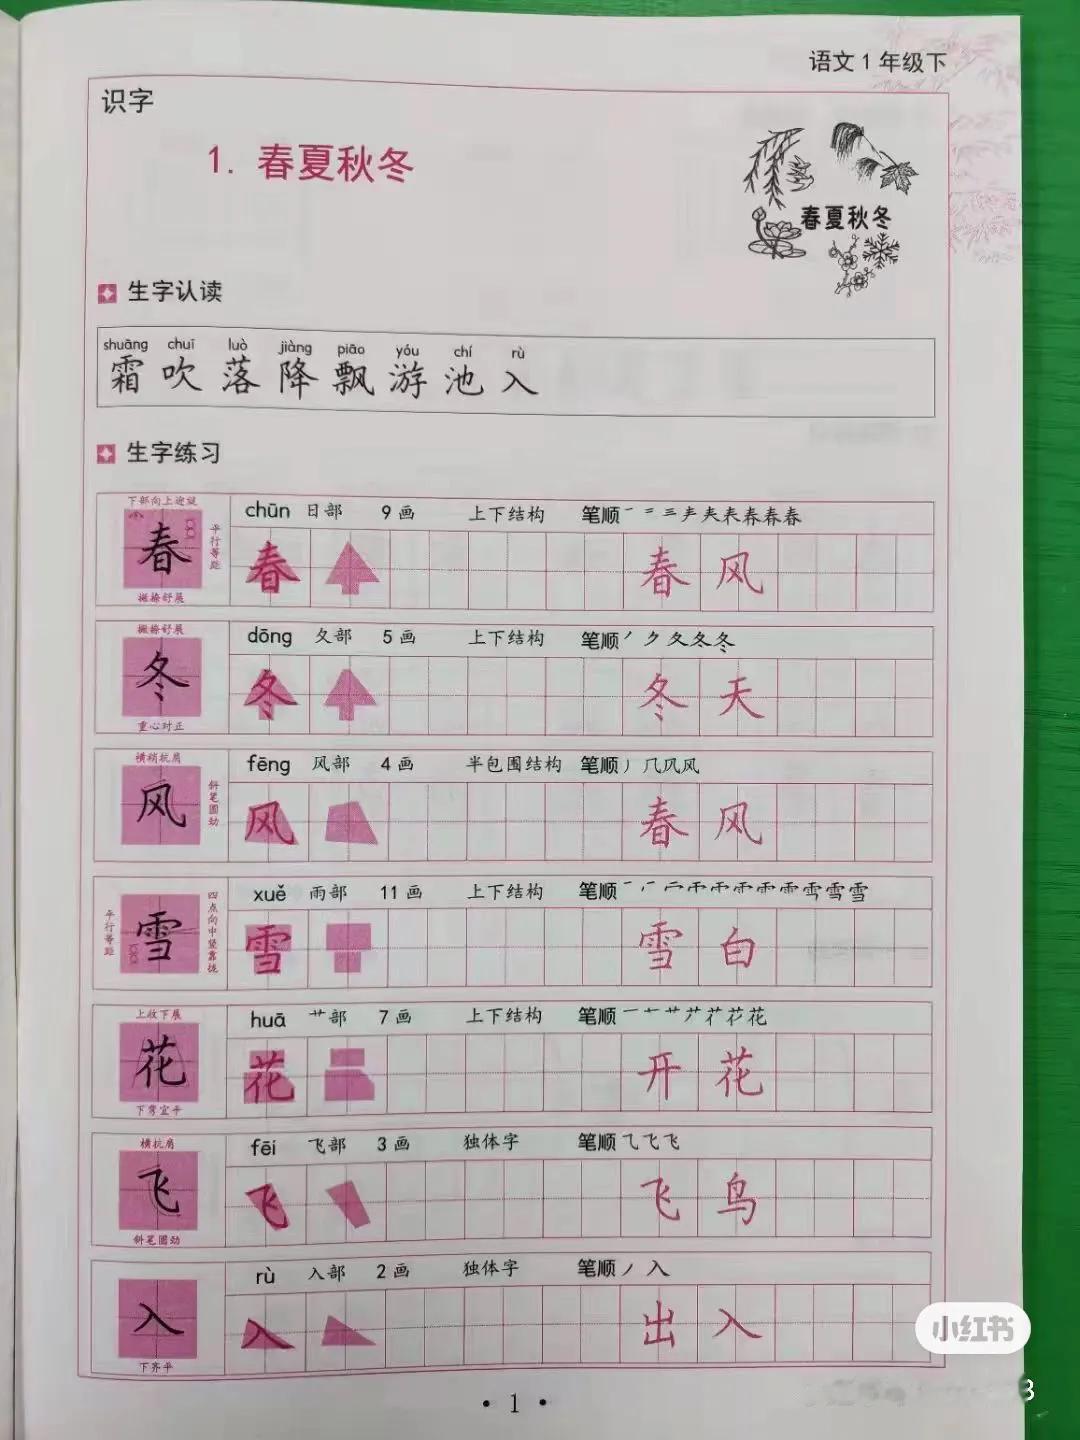 语文1年级下
识字
1. 春夏秋冬
春夏秋冬
生字认读
shuāng chuī luò jiàng piāo yóu chí rù
霜 吹 落 降 飘 游 池 入
生字练习
下部向上迎就
春
平行等距
撇捺舒展
chūn 日部 9画 上下结构 笔顺 一 二 三 𡗗 夫 表 春 春 春
春 春 风
撇捺舒展
冬
重心对正
dōng 夂部 5画 上下结构 笔顺 丿 ク 夂 冬 冬
冬 冬 天
横稍抗肩
风
斜笔圆劲
fēng 风部 4画 半包围结构 笔顺 丿 几 风 风
风 春 风
平行等距
雪
四点向中竖靠拢
xuě 雨部 11画 上下结构 笔顺
雪 雪 白
上收下展
花
下常宜平
huā 艹部 7画 上下结构 笔顺 一 十 艹 花
花 开 花
横抗肩
飞
斜笔圆劲
fēi 飞部 3画 独体字 笔顺 乁 飞 飞
飞 飞 鸟
入
下齐平
rù 入部 2画 独体字 笔顺 丿 入
入 出 入
小红书
• 1 •
3